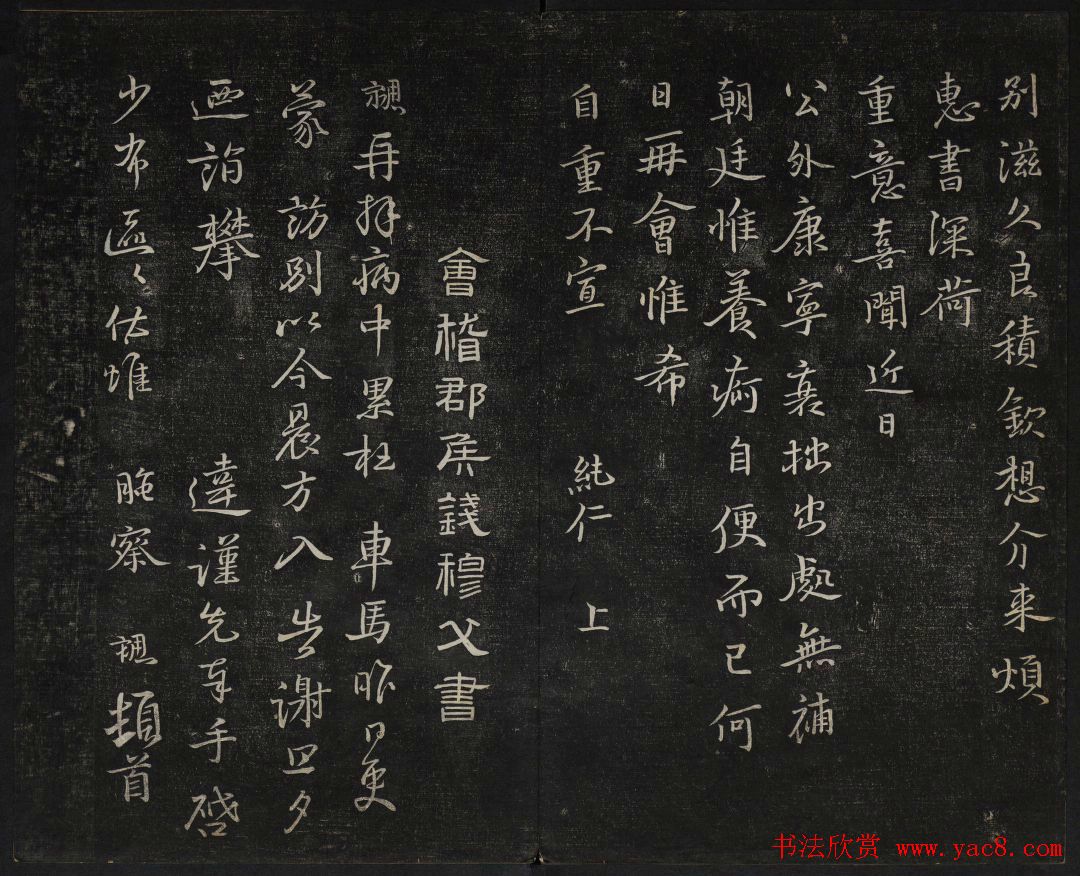 别滋久良積欽想介来煩
惠書深荷
重意喜聞近日
公外康寧衰拙出處無補
朝廷惟養痾自便而已何
日再會惟希
自重不宣 純仁 上
會稽郡侯錢穆父書
勰再拜病中累枉 車馬昨日更
蒙 訪别以今晨方入 告謝旦夕
迺詣攀 違謹先奉手啓
少布區々伏惟 眎察 勰頓首
书法欣赏 www.yac8.com